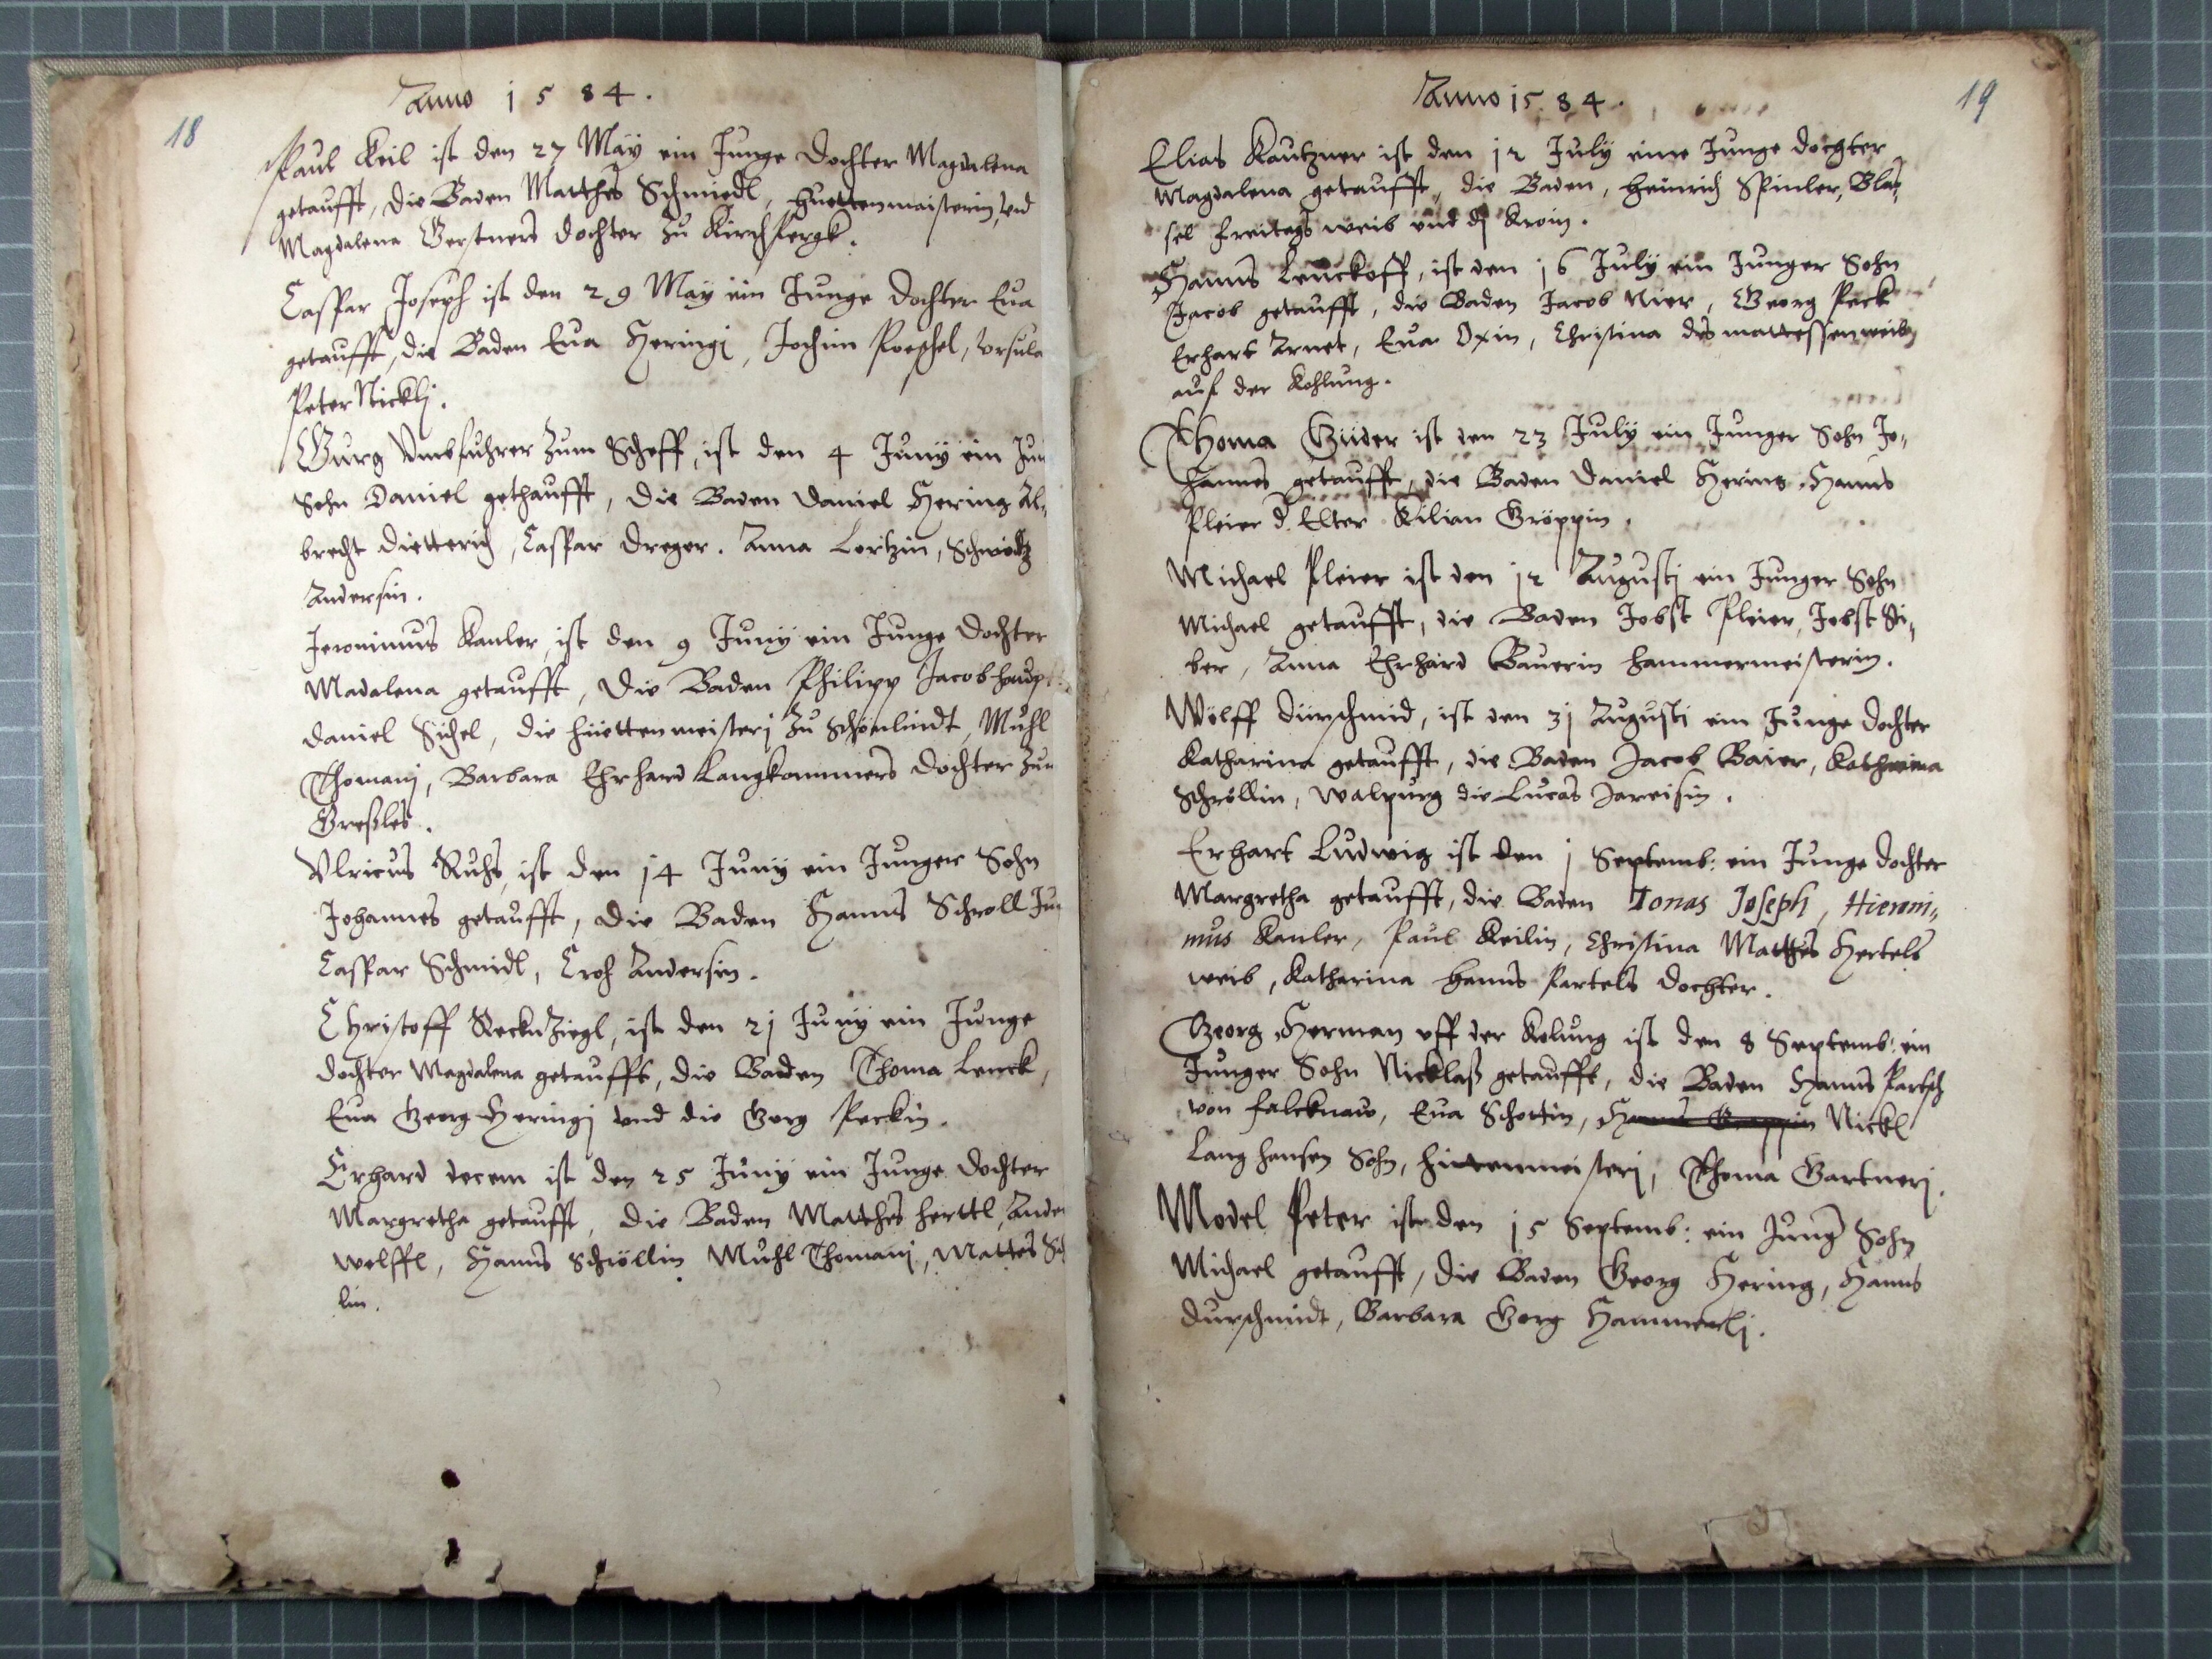 18
Anno 1584.
Paul Keil ist den 27 Maÿ ein Junge dochter Magdalena
getaufft, die Baden Matthes Schmiedl, Huettenmaisterin, vnd
Magdalena Gerstners dochter zu Kirchpergk.
Caspar Joseph ist den 29 Maÿ ein Junge dochter Eua
getaufft, die Baden Eua Heringi, Jochim Poeschel, Vrsula
Peter Nickli.
Gurg Vmbfuhrer zum Scheff, ist den 4 Junÿ ein Jun
Sohn Daniel gethaufft, die Baden Daniel Hering Al„
brecht Dietterich, Caspar Dreger. Anna Loritzin,
Andersin.
Jeronimus Kanler, ist den 9 Junÿ ein Junge dochter
Madalena getaufft, die Baden Philipp Jacob haupt
Daniel Sichel, die hüettenmeisteri zu Schönlindt, Muhl
Thomani, Barbara Ehrhard Langkammers dochter zun
Greßles.
Vlricus Ruhs, ist den 14 Junÿ ein Junger Sohn
Johannes getaufft, die Baden Hanns Schroll Jun
Caspar Schmidl, Andersin.
Christoff Recknziegl, ist den 21 Junÿ ein Junge
dochter Magdalena getaufft, die Baden Thoma Lenck,
Eua Georg Heringi vnd die Gorg Peckin.
Erhard decem ist den 25 Junÿ ein Junge dochter
Margretha getaufft, die Baden Matthes herttl, Ander
wolffl, Hanns Schröllin Muhl Thomani, Mattes Sch
lin.
19
Anno 1584.
Elias Kautzner ist den 12 Julÿ eine Junge dochter
Magdalena getaufft, die Baden, Heinrich Spinler, Blas„
sel freitags weib vnd di
Hanns Lenckoff, ist den 16 Julÿ ein Junger Sohn
Jacob getaufft, die Baden Jacob Nier, Georg Peck
Erhart Arnet, Eua Oxin, Christina des mattessen weib
auf der Kohlung.
Thoma Güder ist den 23 Julÿ ein Junger Sohn Jo„
hannes getaufft, die Baden Daniel Hering, Hanns
Pleier d Elter Kilian Gröppin.
Michael Pleier ist den 12 Augusti ein Junger Sohn
Michael getaufft, die Baden Jobst Pleier, Jobst Si„
ber, Anna Ehrhard Bauerin hammermeisterin.
Wolff Dürschmid, ist den 31 Augusti ein Junge dochter
Katharina getaufft, die Baden Jacob Baier, Katharina
Schröllin, Walpurg die Lucas Jareisin.
Erhart Ludwig ist den 1 Septemb: ein Junge dochter
Margretha getaufft, die Baden Jonas Joseph, Hieroni„
mus Kanler, Paul Keilin, Christina Matthes Hertels
weib, Katharina hanns Partels dochter.
Georg Herman vff der Kolung ist den 8 Septemb: ein
Junger Sohn Nicklaß getaufft, die Baden Hanns Partsch
von falcknaw, Eua Schottin, Hanns Grappin Nickl
Lang hansen Sohn, hüttenmeisteri, Thoma Gartneri.
Model Peter ist den 15 Septemb: ein Jung Sohn
Michael getaufft, die Baden Georg Hering, Hanns
Durschmidt, Barbara Gorg Hammerli.